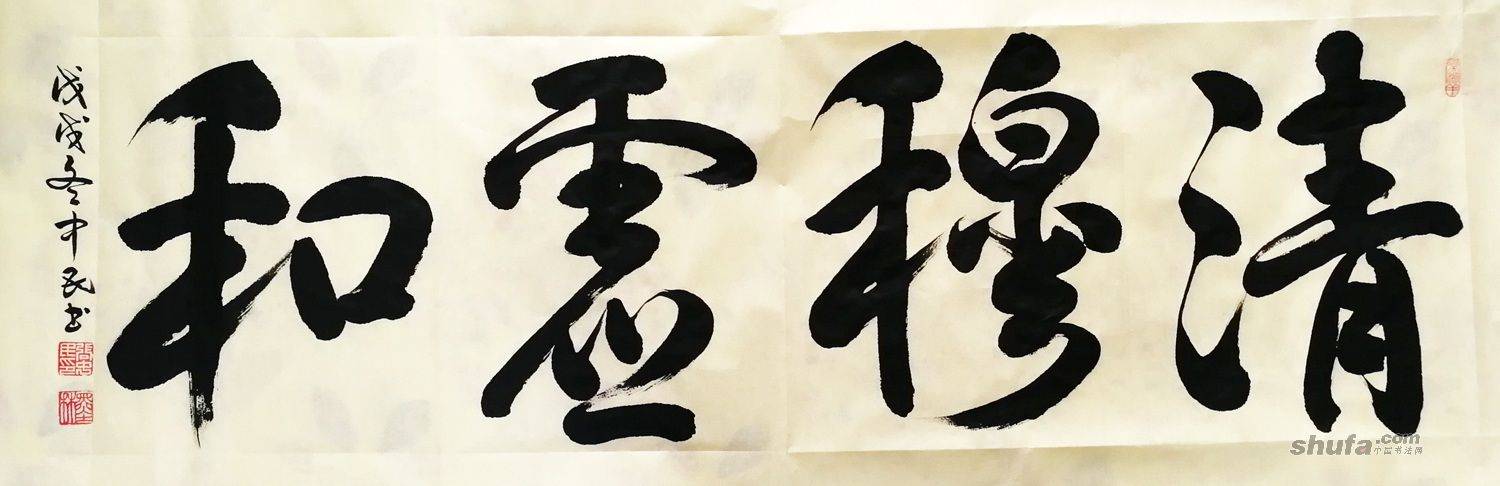 清穆虚和
戊戌冬中民书
shufa.com
中国书法网